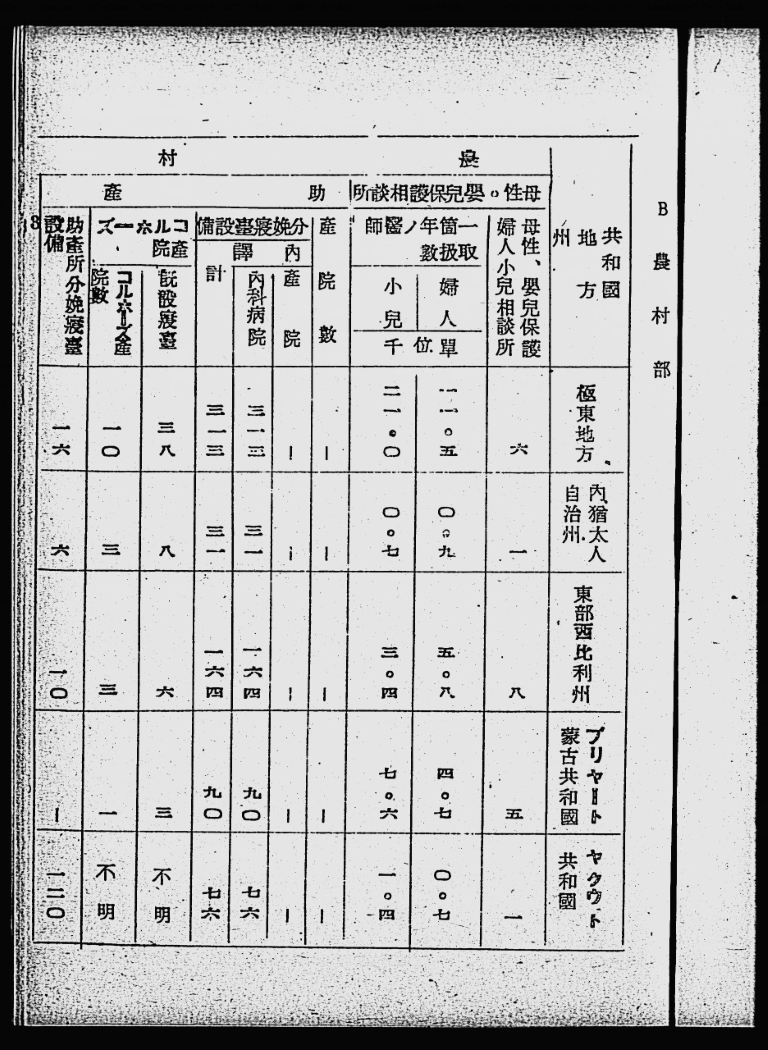 B 農村部
共和國
地方
州
農村
母性。嬰兒保護相談所
母性、嬰兒保護
婦人小兒相談所
一箇年ノ醫師
取扱數
婦人
小兒
單位千
助產
產院數
分娩寢臺設備
內譯
產院
內科病院
計
コルホーズ
產院
既設寢臺
コルホーズ產
院數
助產所分娩寢臺
設備
極東地方
六
一一。五
二一。〇
|
|
三一三
三一三
三八
一〇
一六
內猶太人
自治州
一
〇。九
〇。七
|
|
三一
三一
八
三
六
東部西比利州
八
五。八
三。四
|
|
一六四
一六四
六
三
一〇
ブリヤート
蒙古共和國
五
四。七
七。六
|
|
九〇
九〇
三
一
|
ヤクウト
共和國
一
〇。七
一。四
|
|
七六
七六
不明
不明
一二〇